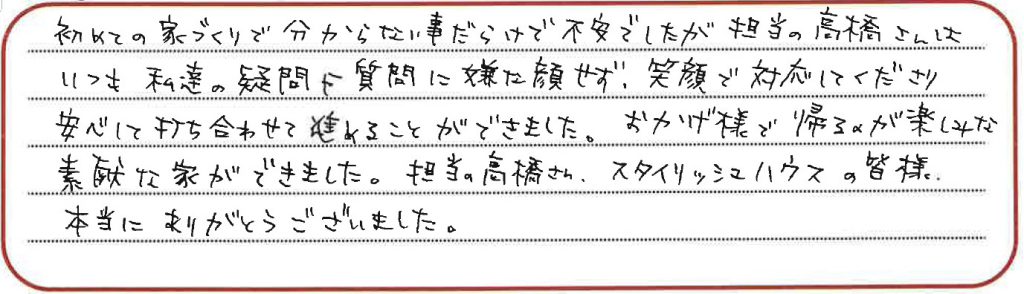 初めての家づくりで分からない事だらけで不安でしたが担当の高橋さんは
いつも私達の疑問や質問に嫌な顔せず、笑顔で対応してくださり
安心して打ち合わせて進めることができました。おかげ様で帰るのが楽しみな
素敵な家ができました。担当の高橋さん、スタイリッシュハウスの皆様、
本当にありがとうございました。